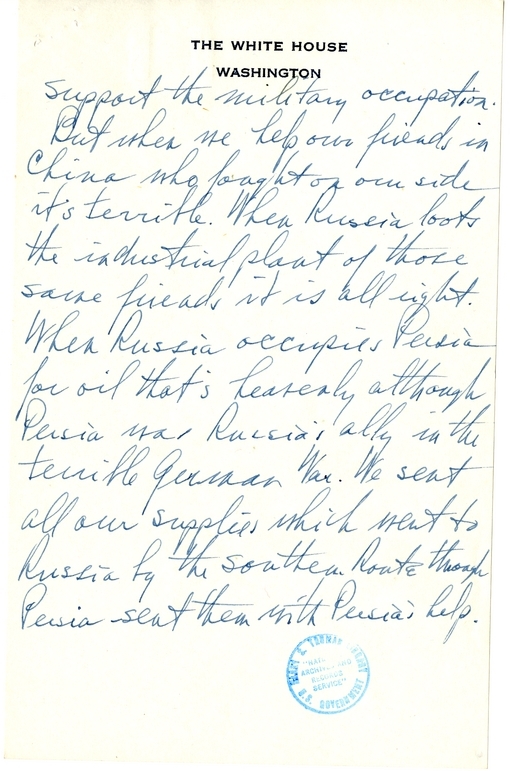 THE WHITE HOUSE
WASHINGTON
support the military occupation.
But when we help our friends in
China who fought on our side
it's terrible. When Russia loots
the industrial plant of those
same friends it is all right.
When Russia occupies Persia
for oil that's heavenly although
Persia was Russia's ally in the
terrible German War. We sent
all our supplies which went to
Russia by the Southern Route through
Persia - sent them with Persia's help.
HARRY S. TRUMAN LIBRARY
"NATIONAL
ARCHIVES AND
RECORDS
SERVICE"
U.S. GOVERNMENT